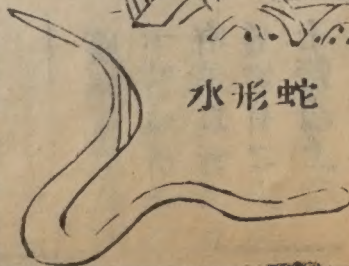 水形蛇